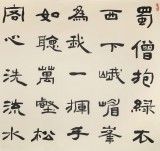 蜀僧抱綠
西下峨嵋峯
為我一揮手
如聽萬壑松
客心洗流水